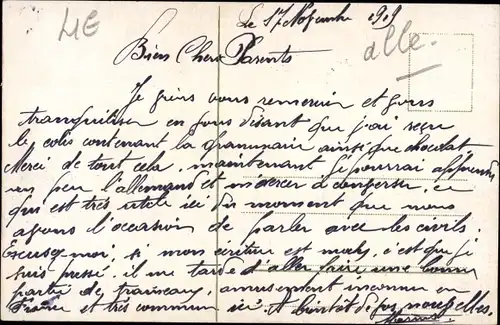 LIE
Le 17 Novembre 191
alle.
Biens Chers Parents
Je viens vous remercier et vous
tranquiliser en vous disant que j'ai reçu
le colis contenant la Grammaire ainsi que chocolat
Merci de tout cela, maintenant je pourrai apprendre
un peu l'allemand et m'exercer à converser, ce
qui est très utile ici du moment que nous
avons l'occasion de parler avec les civils.
Excusez-moi, si mon écriture est moche, c'est que je
suis pressé. il me tarde d'aller faire une bonne
partie de traineau, amusement inconnu en
France et très commun ici. A bientôt de vos nouvelles